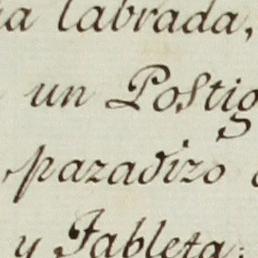 a labrada,
un Postig
pazadizo
y Tableta: